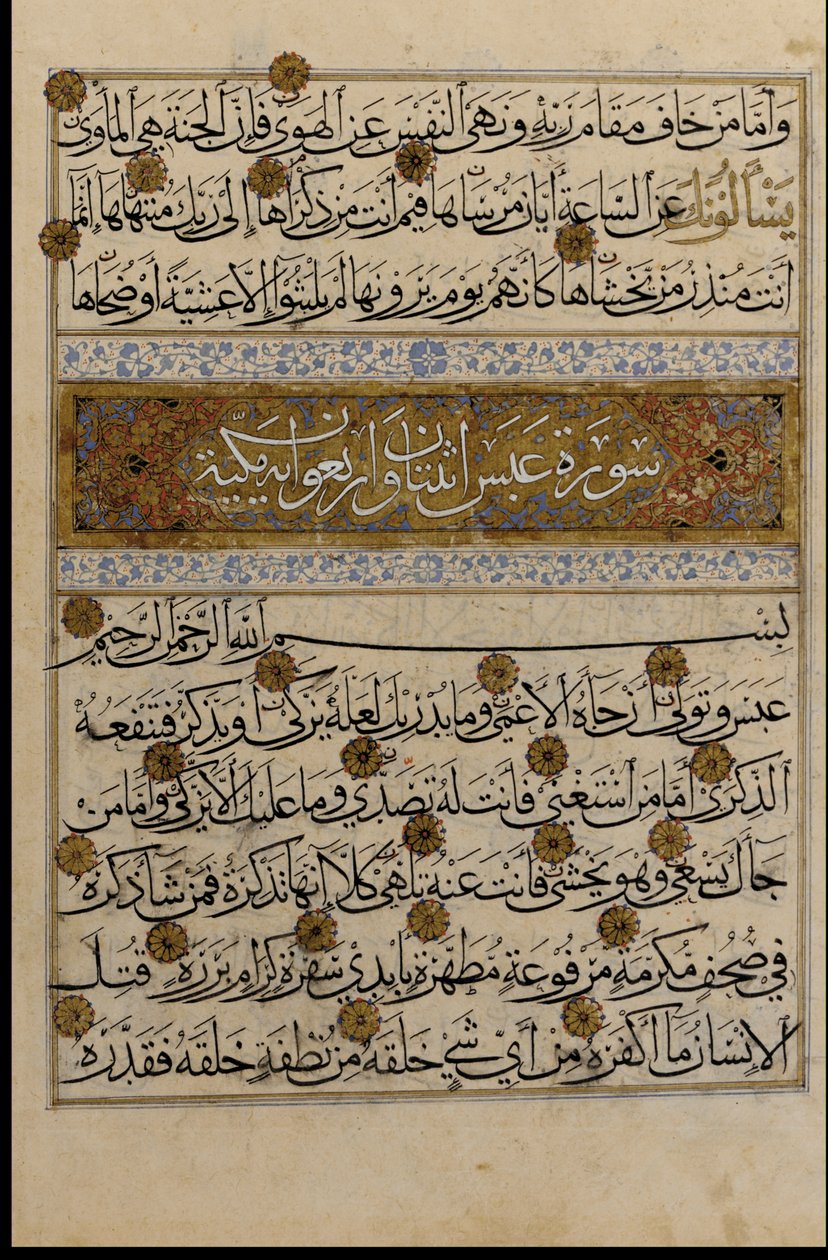 وَأَمَّا مَنْ خَافَ مَقَامَ رَبِّهِ وَنَهَى ٱلنَّفْسَ عَنِ ٱلْهَوَىٰ فَإِنَّ ٱلْجَنَّةَ هِيَ ٱلْمَأْوَىٰ
يَسْأَلُونَكَ عَنِ ٱلسَّاعَةِ أَيَّانَ مُرْسَاهَا فِيمَ أَنْتَ مِنْ ذِكْرَاهَا إِلَىٰ رَبِّكَ مُنْتَهَاهَا إِنَّمَا
أَنْتَ مُنْذِرُ مَنْ يَخْشَاهَا كَأَنَّهُمْ يَوْمَ يَرَوْنَهَا لَمْ يَلْبَثُوٓا إِلَّا عَشِيَّةً أَوْ ضُحَاهَا
سورة عبس اثنتان واربعون اية مكية
بِسْمِ ٱللَّهِ ٱلرَّحْمَٰنِ ٱلرَّحِيمِ
عَبَسَ وَتَوَلَّىٰ أَنْ جَآءَهُ ٱلْأَعْمَىٰ وَمَا يُدْرِيكَ لَعَلَّهُ يَزَّكَّىٰ أَوْ يَذَّكَّرُ فَتَنْفَعُهُ
ٱلذِّكْرَىٰ أَمَّا مَنِ ٱسْتَغْنَىٰ فَأَنْتَ لَهُ تَصَدَّىٰ وَمَا عَلَيْكَ أَلَّا يَزَّكَّىٰ وَأَمَّا مَنْ
جَآءَكَ يَسْعَىٰ وَهُوَ يَخْشَىٰ فَأَنْتَ عَنْهُ تَلَهَّىٰ كَلَّآ إِنَّهَا تَذْكِرَةٌ فَمَنْ شَآءَ ذَكَرَهُ
فِي صُحُفٍ مُكَرَّمَةٍ مَرْفُوعَةٍ مُطَهَّرَةٍ بِأَيْدِي سَفَرَةٍ كِرَامٍ بَرَرَةٍ قُتِلَ
ٱلْإِنْسَانُ مَآ أَكْفَرَهُ مِنْ أَيِّ شَيْءٍ خَلَقَهُ مِنْ نُطْفَةٍ خَلَقَهُ فَقَدَّرَهُ